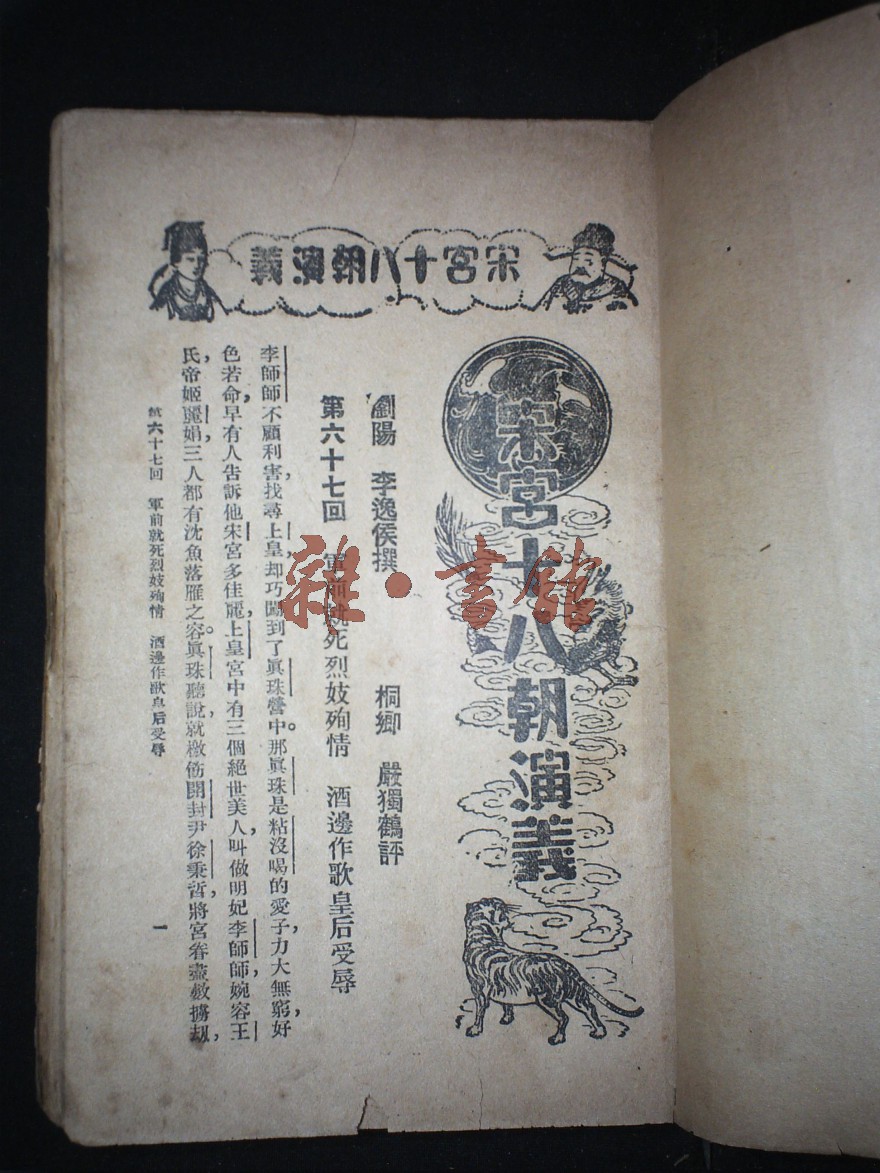 宋宮十八朝演義
宋宮十八朝演義
劉陽 李逸侯撰 桐鄉 嚴獨鶴評
第六十七回 軍前就死烈妓殉情 酒邊作歌皇后受辱
李師師不顧利害，找尋上皇，却巧闖到了眞珠營中。那眞珠是粘沒喝的愛子，力大無窮，好
色若命，早有人告訴他，宋宮多佳麗，上皇宮中有三個絕世美人，叫做明妃李師師，婉容王
氏，帝姬麗娟，三人都有沈魚落雁之容。眞珠聽說，就檄飭開封尹徐秉哲，將宮眷盡數擄刼，
第六十七回 軍前就死烈妓殉情 酒邊作歌皇后受辱
一
雜·書館